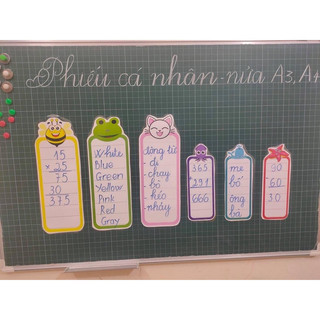 Phiếu cá nhân - nửa A3, A4
15
× 25
75
30
375
White
Blue
Green
Yellow
Pink
Red
Gray
động từ
- đi
- chạy
- bò
- kéo
- nhảy
365
666
mẹ
bố
ông
bà
90
- 60
30